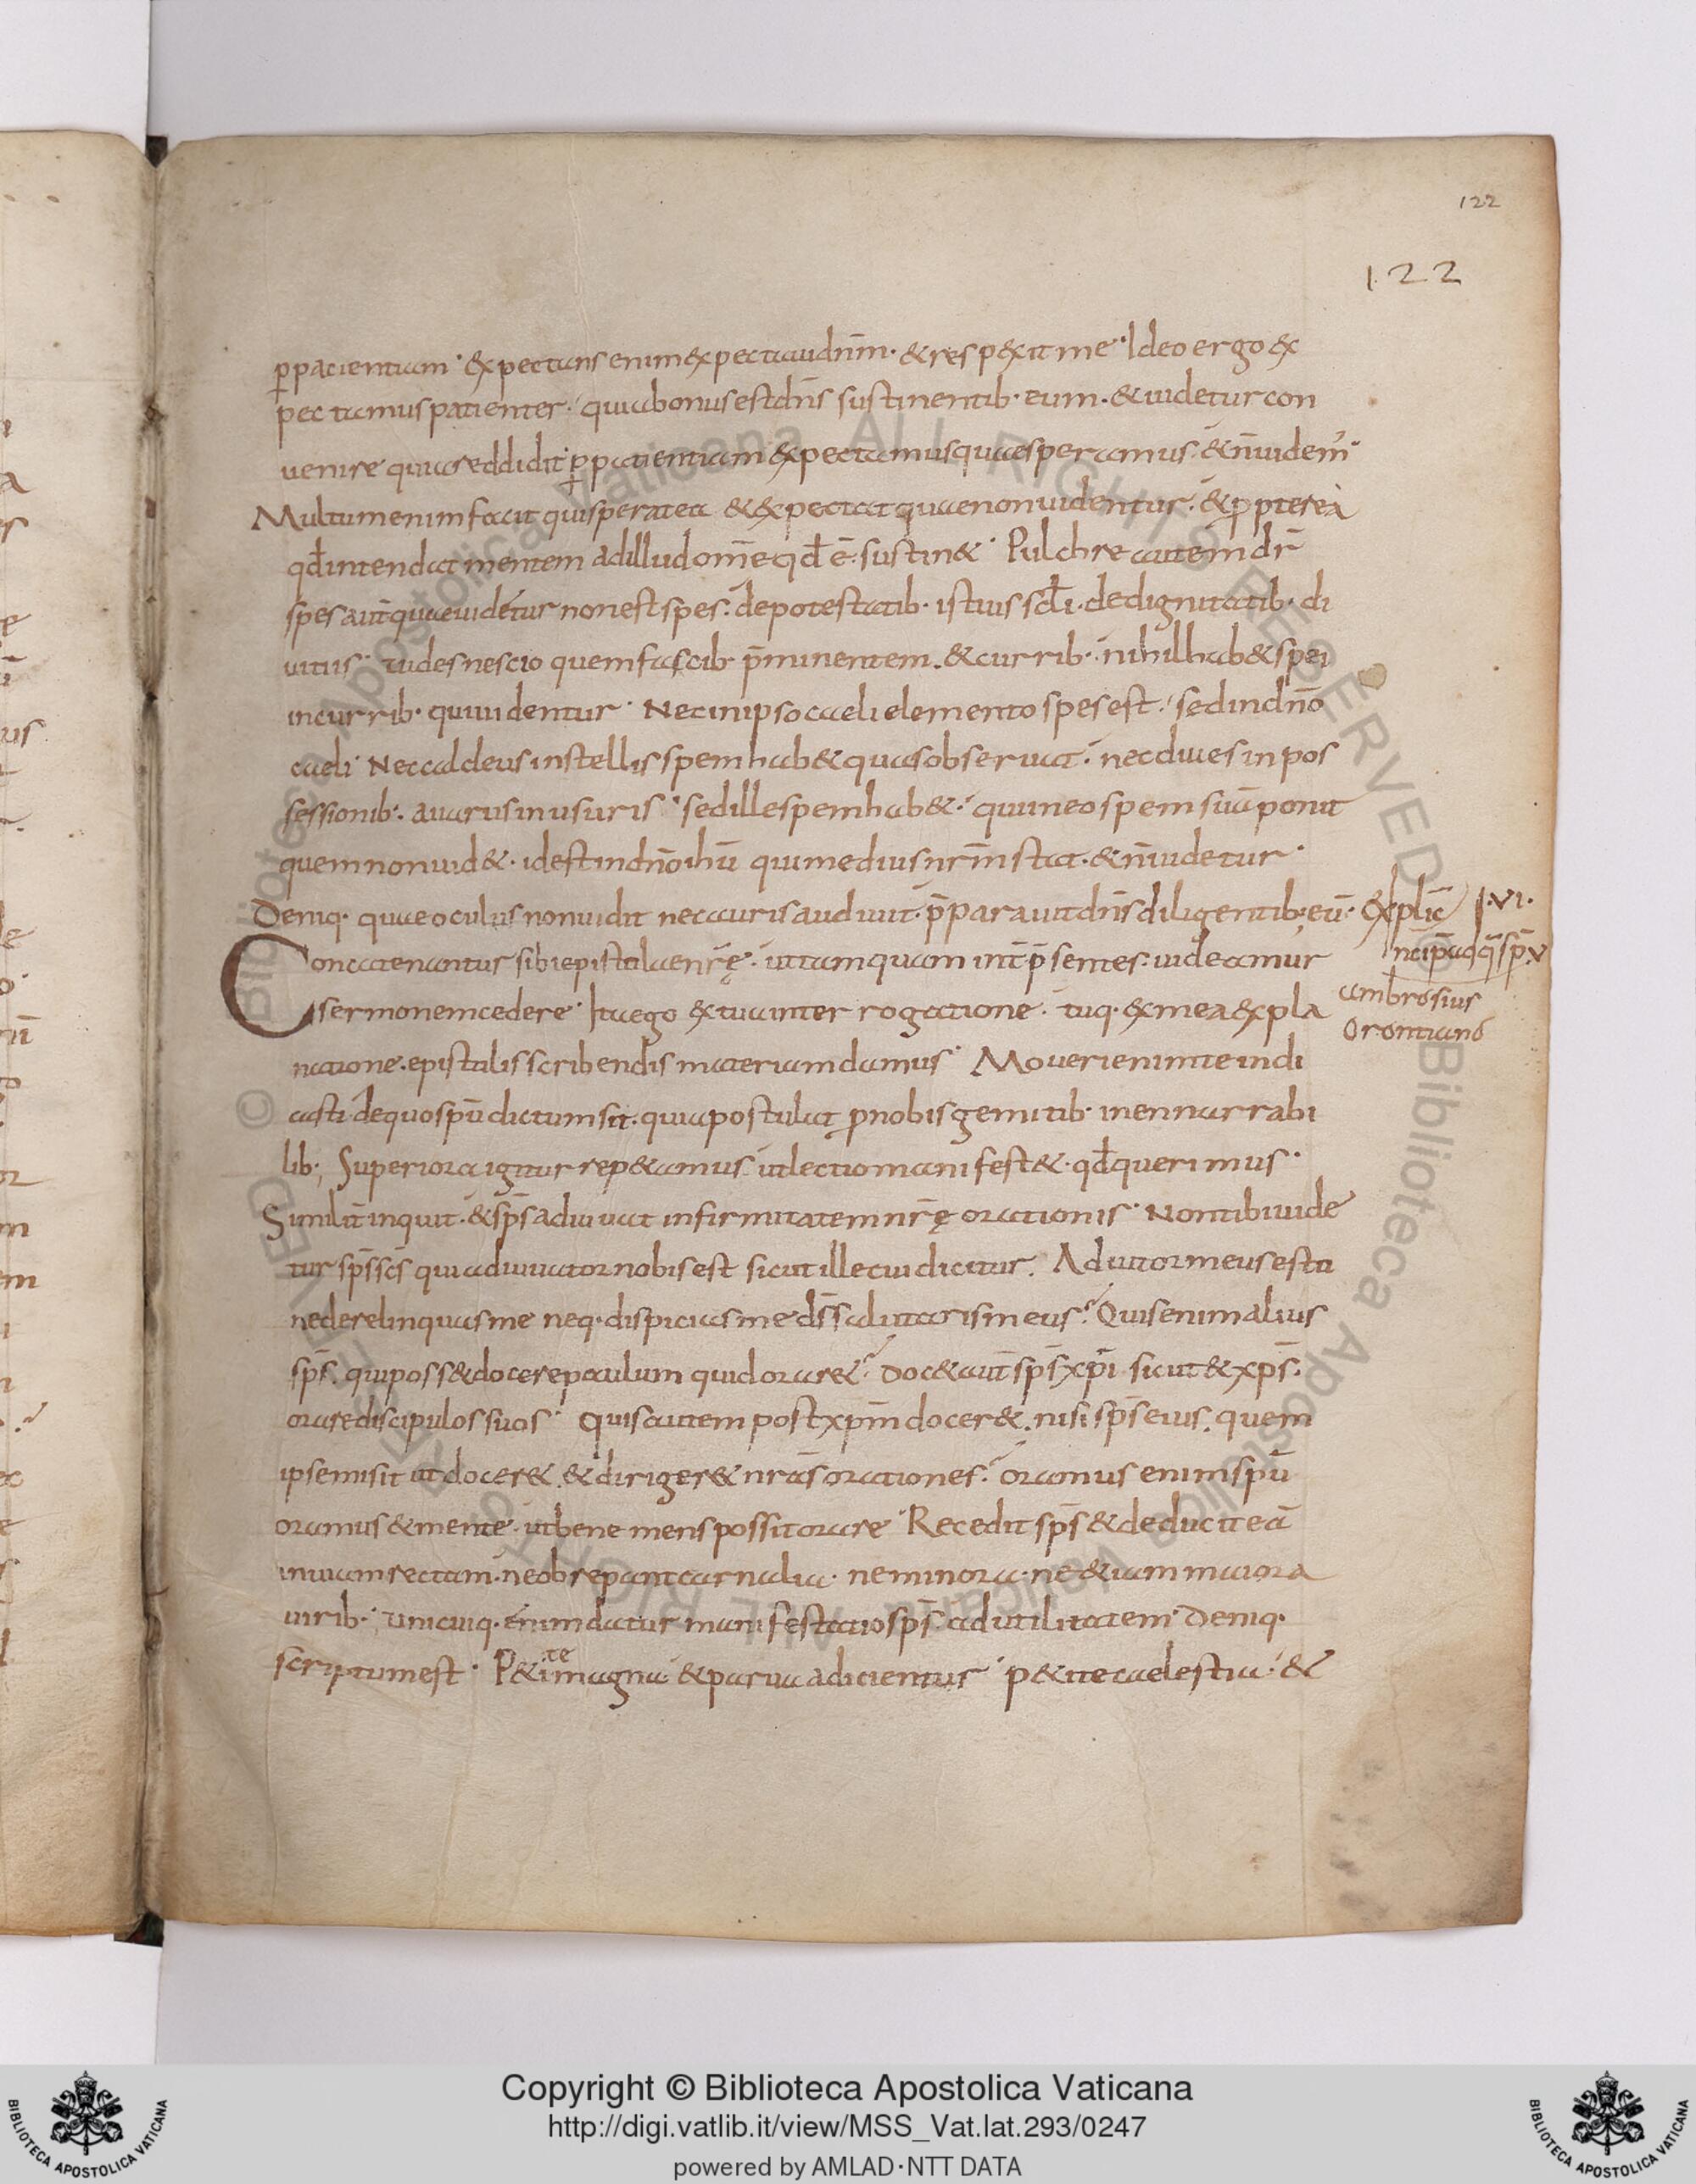 122
122
p̄pacientiam· expectans enim expectaui dnm̄· & respexit me· Ideo ergo ex
pectamus patienter· quia bonus est dn̄s sustinentib· eum· & uidetur con
uenire quia reddidit· p̄ patientiam expectamus quae speramus· & n̄ uidem̄·
Multum enim facit qui sperat ea & expectat quae non uidentur· & ꝓpterea
qd̄ intendat mentem ad illud om̄e qd̄ ē· sustin&· Pulchre autem dr̄
spes aut̄ quae uidetur non est spes· de potestatib· istius scl̄i· de dignitatib· di
uitiis· tu des nescio quem fascib p̄minentem· & currib· nihil hab& spei
in currib· qui uidentur· Nec in ipso caeli elemento spes est· sed in dn̄o
caeli· Nec caldeus in stellis spem hab& quas obseruat· nec diues in pos
sessionib· auarus in usuris· sed ille spem hab&· qui in eo spem suā ponit
quem non uid&· id est in dn̄o ihū qui medius nr̄m stat· & n̄ uidetur·
Deniq· quae oculus non uidit nec auris audiuit· p̄parauit dn̄s diligentib; eū· explic̄ l·VI·
ncip̄ ad q̄ sp̄·V
Concatenantur sibi epistulae nr̄ę· ut tamquam int̄ p̄sentes· uideamur
ambrosius
sermonem cedere· Ita ego ex tua interrogatione· tuq· ex mea expla
Orontiano
natione· epistulis scribendis materiam damus· Moueri enim te indi
casti· de quo spū dictum sit· quia postulat ꝓ nobis gemitib· inennarrabi
lib; Superiora igitur rep&amus ut lectio manifest&· qd̄ querimus·
Similit̄ inquit· & sp̄s adiuuat infirmitatem nr̄ę orationis· Non tibi uide
tur sp̄s sc̄s qui adiuuator nobis est sicut ille cui dicitur· Adiutor meus esto
ne derelinquas me neq· dispicias me d̄s salutaris meus· Quis enim alius
sp̄s· qui poss& docere paulum quid orar&· Doc& aut̄ sp̄s xp̄i sicut & xp̄s·
orare discipulos suos· Quis autem post xp̄m docer&· nisi sp̄s eius· quem
ipse misit ut docer& & diriger& nr̄as orationes· oramus enim spū
oramus & mente· ut bene mens possit orare· Recedit sp̄s & deducit eā
in uiam rectam· ne obrepant carnalia· ne minora· ne & iam maiora
uirib· Unicuiq· enim datur manifestatio sp̄s· ad utilitatem· Deniq·
scriptum est· P&ite magna· & parua adicientur· p&ite caelestia· &
Copyright © Biblioteca Apostolica Vaticana
http://digi.vatlib.it/view/MSS_Vat.lat.293/0247
powered by AMLAD·NTT DATA
BIBLIOTECA APOSTOLICA VATICANA
BIBLIOTECA APOSTOLICA VATICANA